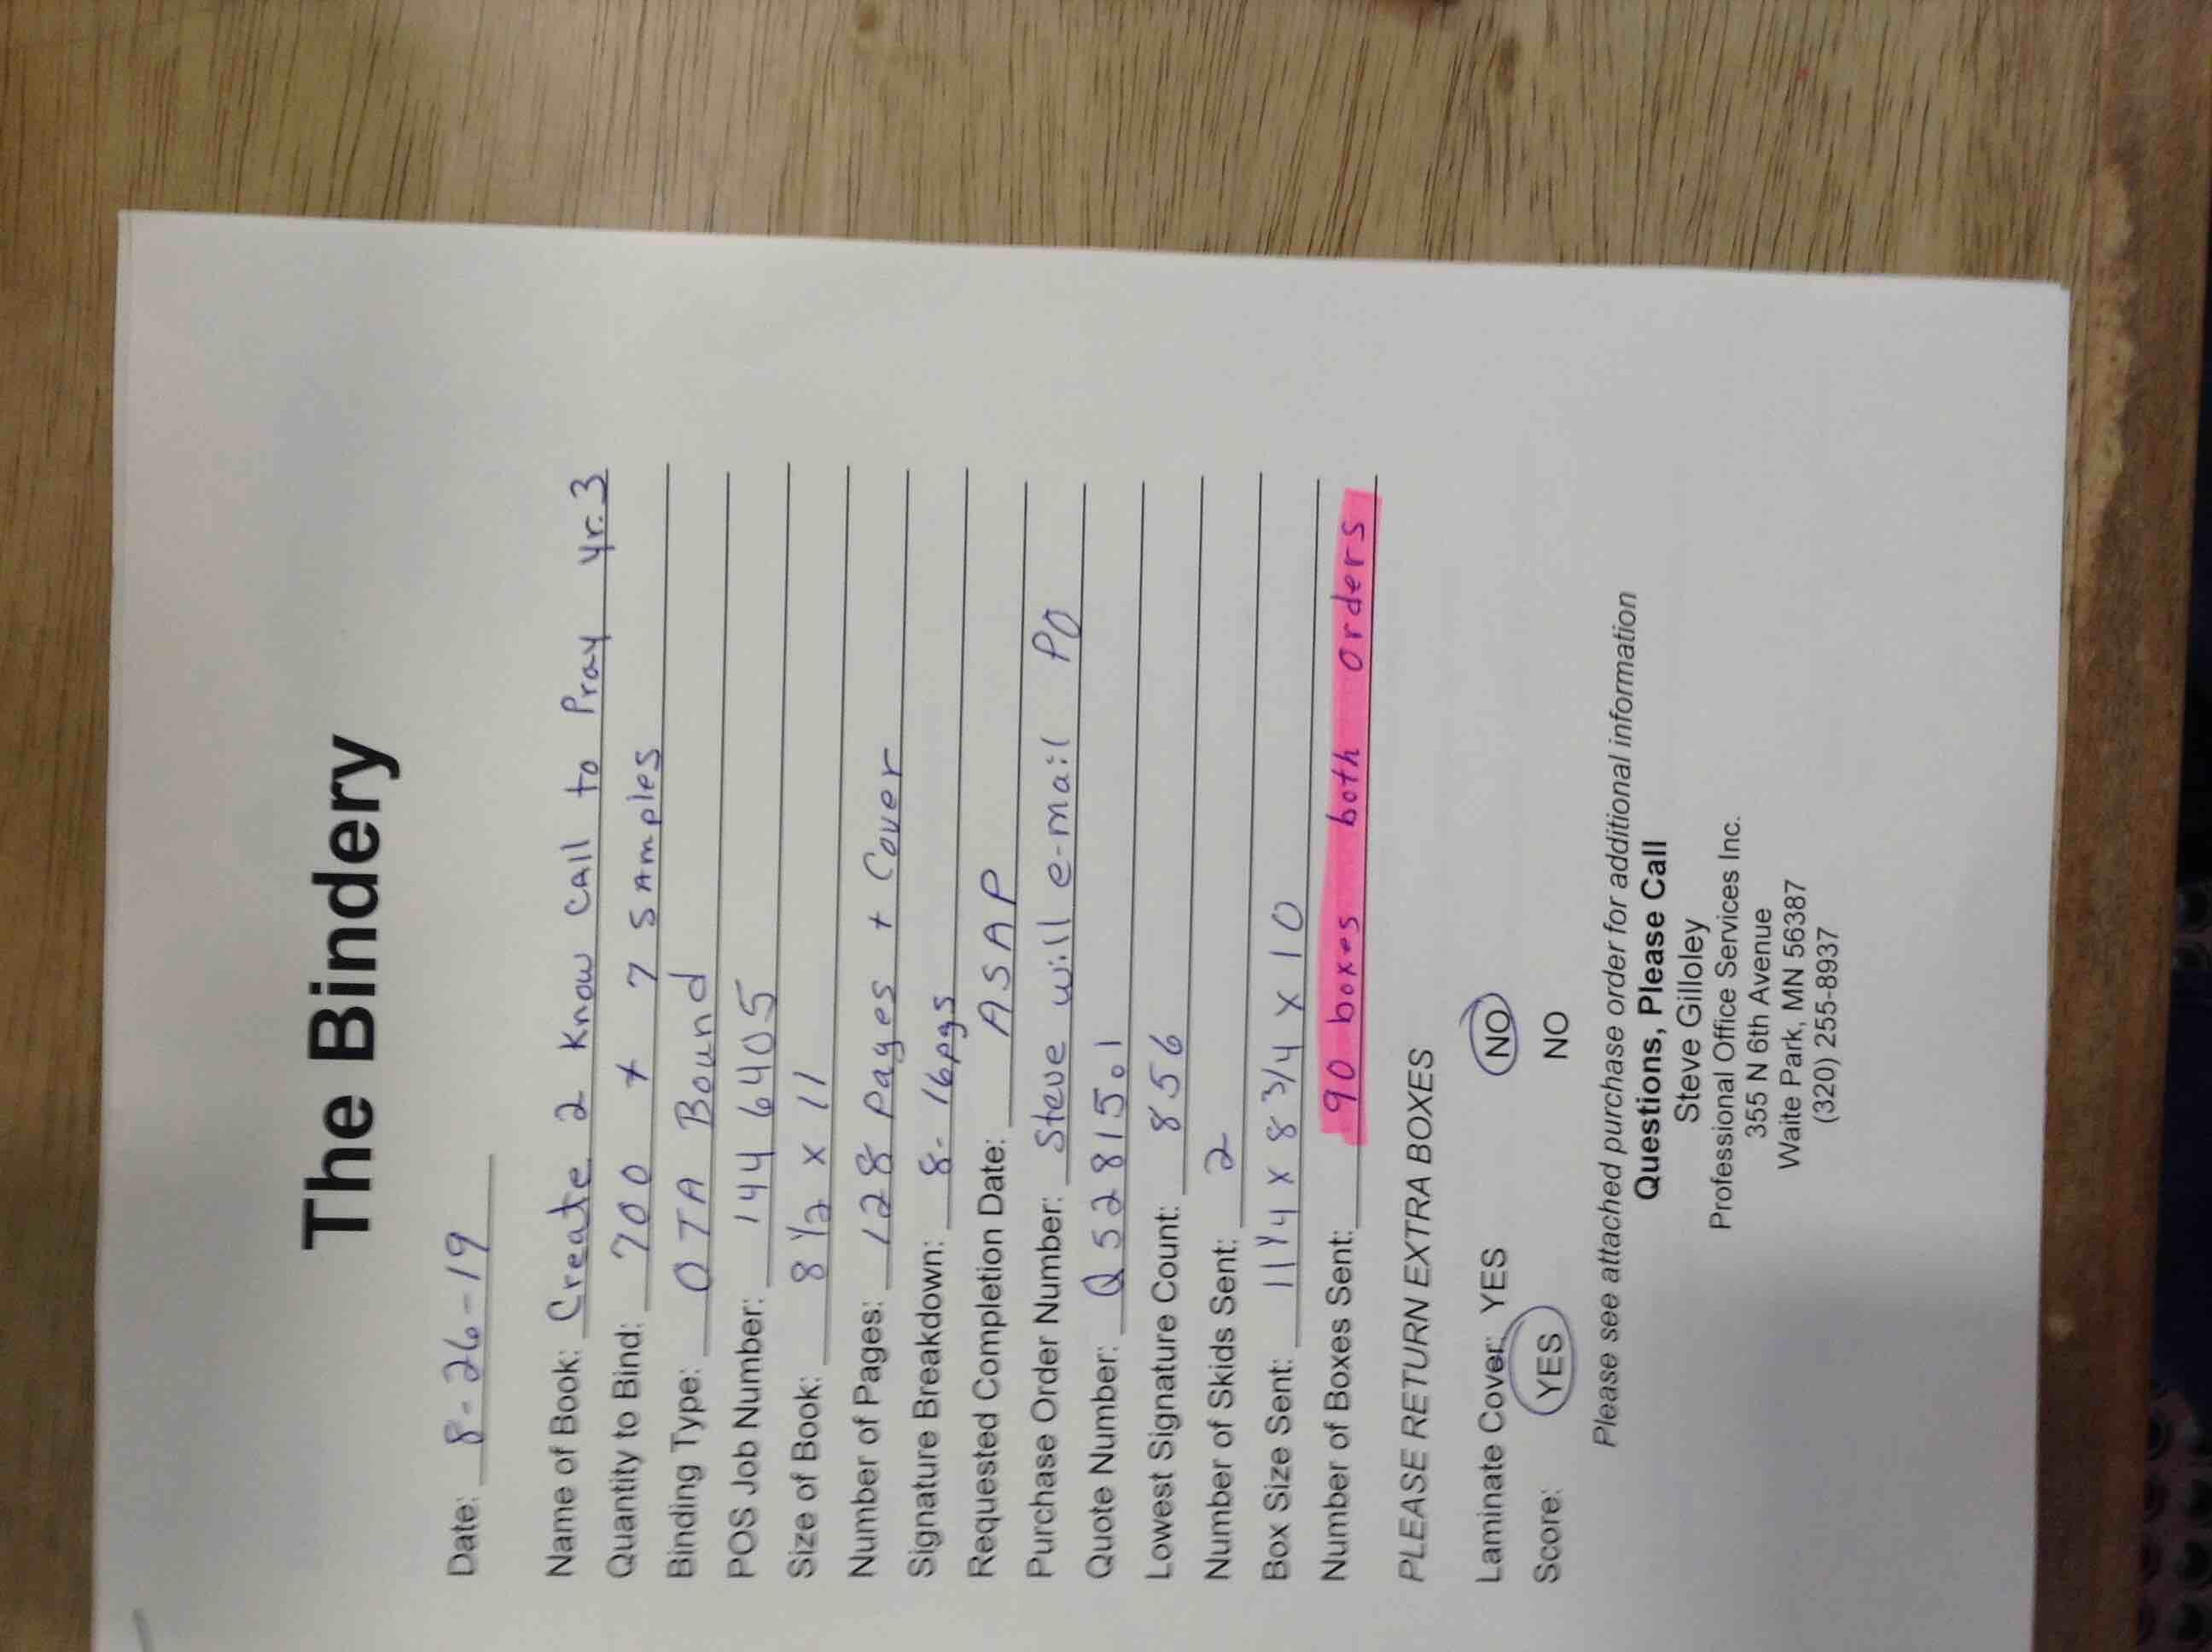 The Bindery
Date: 8-26-19
Name of Book: Create 2 Know Call to Pray yr.3
Quantity to Bind: 700 + 7 samples
Binding Type: OTA Bound
POS Job Number: 1446405
Size of Book: 8 1/2 x 11
Number of Pages: 128 pages + Cover
Signature Breakdown: 8-16pgs
Requested Completion Date: ASAP
Purchase Order Number: Steve will e-mail PO
Quote Number: Q52815.1
Lowest Signature Count: 856
Number of Skids Sent: 2
Box Size Sent: 11 1/4 x 8 3/4 x 10
Number of Boxes Sent: 90 boxes both orders
PLEASE RETURN EXTRA BOXES
Laminate Cover: YES NO
Score: YES NO
Please see attached purchase order for additional information
Questions, Please Call
Steve Gilloley
Professional Office Services Inc.
355 N 6th Avenue
Waite Park, MN 56387
(320) 255-8937